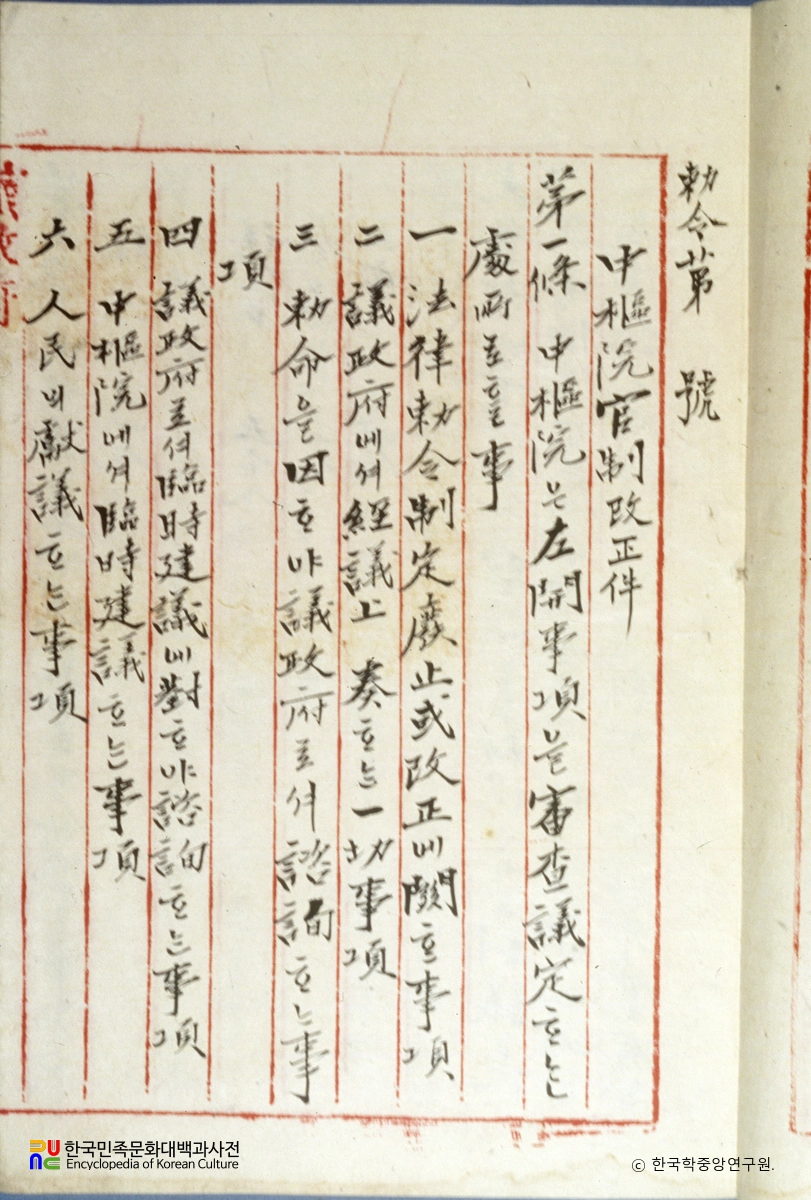 勅令第　號
中樞院官制改正件
第一條　中樞院은左開事項을審査議定ᄒᆞᄂᆞᆫ
處所로ᄒᆞᆯ事
一　法律勅令制定廢止或改正에關ᄒᆞᆫ事項
二　議政府에셔經議上　奏ᄒᆞᄂᆞᆫ一切事項
三　勅命을因ᄒᆞ야議政府로셔諮詢ᄒᆞᄂᆞᆫ事
項
四　議政府로셔臨時建議에對ᄒᆞ야諮詢ᄒᆞᄂᆞᆫ事項
五　中樞院에셔臨時建議ᄒᆞᄂᆞᆫ事項
六　人民의獻議ᄒᆞᄂᆞᆫ事項
議政府
한국민족문화대백과사전
Encyclopedia of Korean Culture
ⓒ 한국학중앙연구원.